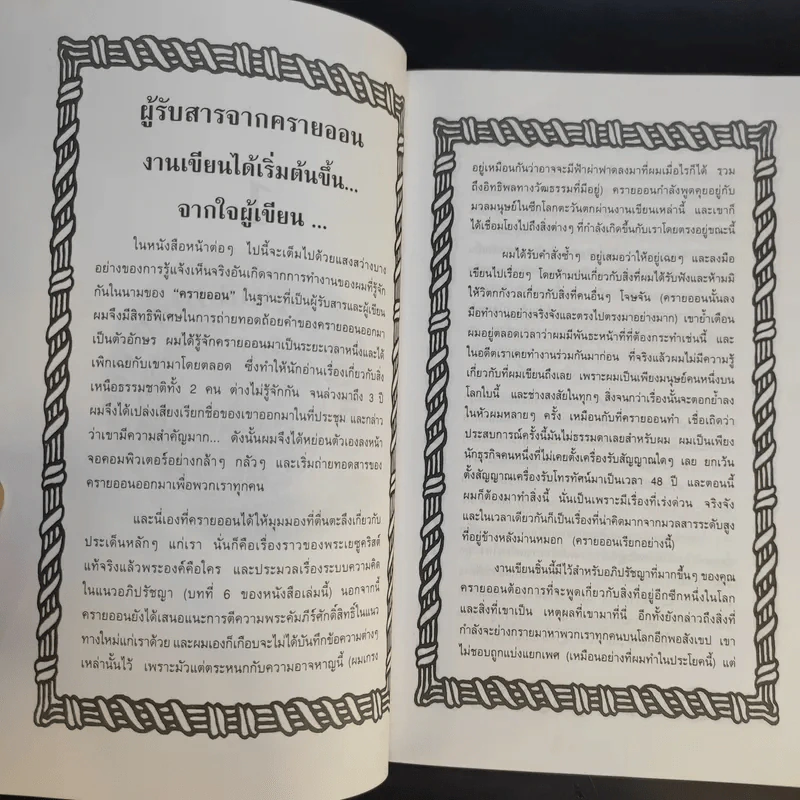 ผู้รับสารจากครายออน
งานเขียนได้เริ่มต้นขึ้น...
จากใจผู้เขียน ...
ในหนังสือหน้าต่อๆ ไปนี้จะเต็มไปด้วยแสงสว่างบาง
อย่างของการรู้แจ้งเห็นจริงอันเกิดจากการทำงานของผมที่รู้จัก
กันในนามของ “ครายออน” ในฐานะที่เป็นผู้รับสารและผู้เขียน
ผมจึงมีสิทธิพิเศษในการถ่ายทอดถ้อยคำของครายออนออกมา
เป็นตัวอักษร ผมได้รู้จักครายออนมาเป็นระยะเวลาหนึ่งและได้
เพิกเฉยกับเขามาโดยตลอด ซึ่งทำให้นักอ่านเรื่องเกี่ยวกับสิ่ง
เหนือธรรมชาติทั้ง 2 คน ต่างไม่รู้จักกัน จนล่วงมาถึง 3 ปี
ผมจึงได้เปล่งเสียงเรียกชื่อของเขาออกมาในที่ประชุม และกล่าว
ว่าเขามีความสำคัญมาก... ดังนั้นผมจึงได้หย่อนตัวเองลงหน้า
จอคอมพิวเตอร์อย่างกล้าๆ กลัวๆ และเริ่มถ่ายทอดสารของ
ครายออนออกมาเพื่อพวกเราทุกคน
และนี่เองที่ครายออนได้ให้มุมมองที่ตื่นตะลึงเกี่ยวกับ
ประเด็นหลักๆ แก่เรา นั่นก็คือเรื่องราวของพระเยซูคริสต์
แท้จริงแล้วพระองค์คือใคร และประมวลเรื่องระบบความคิด
ในแนวอภิปรัชญา (บทที่ 6 ของหนังสือเล่มนี้) นอกจากนี้
ครายออนยังได้เสนอแนะการตีความพระคัมภีร์ศักดิ์สิทธิ์ในแนว
ทางใหม่แก่เราด้วย และผมเองก็เกือบจะไม่ได้บันทึกข้อความต่างๆ
เหล่านั้นไว้ เพราะมัวแต่ตระหนกกับความอาจหาญนี้ (ผมเกรง
อยู่เหมือนกันว่าอาจจะมีฟ้าผ่าฟาดลงมาที่ผมเมื่อไรก็ได้ รวม
ถึงอิทธิพลทางวัฒธรรมที่มีอยู่) ครายออนกำลังพูดคุยอยู่กับ
มวลมนุษย์ในซีกโลกตะวันตกผ่านงานเขียนเหล่านี้ และเขาก็
ได้เชื่อมโยงไปถึงสิ่งต่างๆ ที่กำลังเกิดขึ้นกับเราโดยตรงอยู่ขณะนี้
ผมได้รับคำสั่งซ้ำๆ อยู่เสมอว่าให้อยู่เฉยๆ และลงมือ
เขียนไปเรื่อยๆ โดยห้ามบ่นเกี่ยวกับสิ่งที่ผมได้รับฟังและห้ามมิ
ให้วิตกกังวลเกี่ยวกับสิ่งที่คนอื่นๆ โจษจัน (ครายออนนั้นลง
มือทำงานอย่างจริงจังและตรงไปตรงมาอย่างมาก) เขาย้ำเตือน
ผมอยู่ตลอดเวลาว่าผมมีพันธะหน้าที่ที่ต้องกระทำเช่นนี้ และ
ในอดีตเราเคยทำงานร่วมกันมาก่อน ที่จริงแล้วผมไม่มีความรู้
เกี่ยวกับที่ผมเขียนถึงเลย เพราะผมเป็นเพียงมนุษย์คนหนึ่งบน
โลกใบนี้ และช่างสงสัยในทุกๆ สิ่งจนกว่าเรื่องนั้นจะตอกย้ำลง
ในหัวผมหลายๆ ครั้ง เหมือนกับที่ครายออนทำ เชื่อเถิดว่า
ประสบการณ์ครั้งนี้มันไม่ธรรมดาเลยสำหรับผม ผมเป็นเพียง
นักธุรกิจคนหนึ่งที่ไม่เคยตั้งเครื่องรับสัญญาณใดๆ เลย ยกเว้น
ตั้งสัญญาณเครื่องรับโทรทัศน์มาเป็นเวลา 48 ปี และตอนนี้
ผมก็ต้องมาทำสิ่งนี้ นั่นเป็นเพราะมีเรื่องที่เร่งด่วน จริงจัง
และในเวลาเดียวกันก็เป็นเรื่องที่น่าคิดมากจากมวลสารระดับสูง
ที่อยู่ข้างหลังม่านหมอก (ครายออนเรียกอย่างนี้)
งานเขียนชิ้นนี้มีไว้สำหรับอภิปรัชญาที่มากขึ้นๆ ของคุณ
ครายออนต้องการที่จะพูดเกี่ยวกับสิ่งที่อยู่อีกซีกหนึ่งในโลก
และสิ่งที่เขาเป็น เหตุผลที่เขามาที่นี่ อีกทั้งยังกล่าวถึงสิ่งที่
กำลังจะย่างกรายมาหาพวกเราทุกคนบนโลกอีกพอสังเขป เขา
ไม่ชอบถูกแบ่งแยกเพศ (เหมือนอย่างที่ผมทำในประโยคนี้) แต่